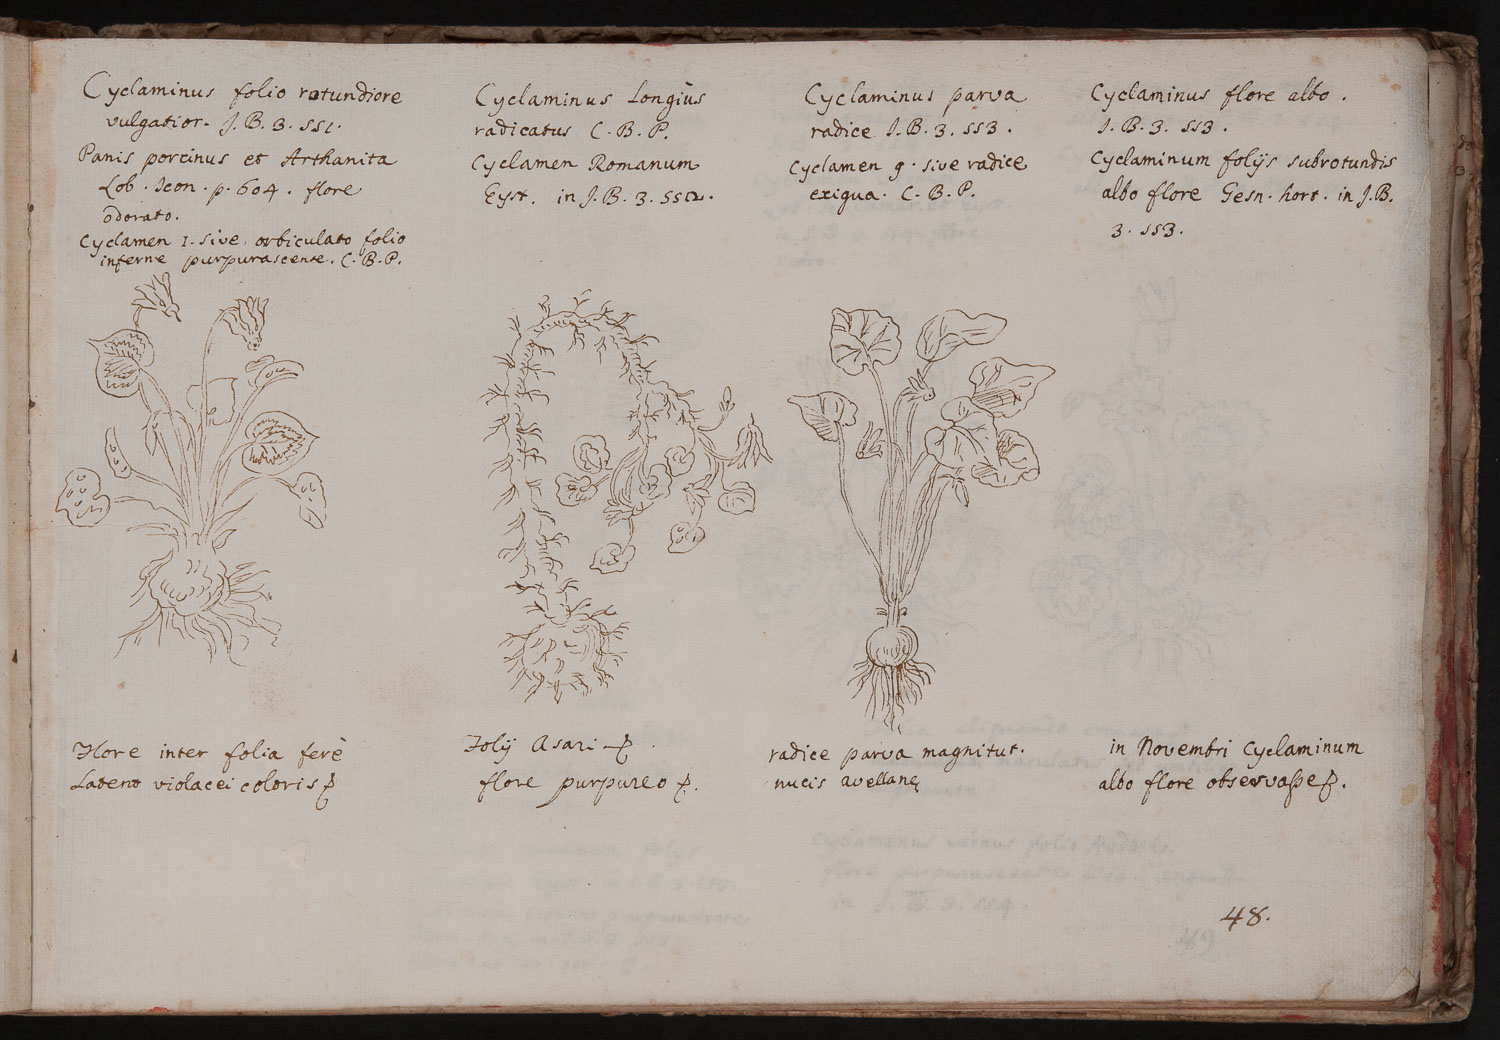 Cyclaminus folio rotundiore
vulgatior. J. B. 3. 551.
Panis porcinus et Arthanita
Lob. Icon. p. 604. flore
odorato.
Cyclamen 1. sive orbiculato folio
inferne purpurascente. C. B. P.
Flore inter folia ferè
Latent violacei coloris
Cyclaminus Longiùs
radicatus C. B. P.
Cyclamen Romanum
Eyst. in J. B. 3. 552.
Folij Asari
flore purpureo
Cyclaminus parva
radice J. B. 3. 553.
Cyclamen 9. sive radice
exigua. C. B. P.
radice parva magnitut.
nucis avellanę
Cyclaminus flore albo.
J. B. 3. 553.
Cyclaminum folijs subrotundis
albo flore Gesn. hort. in J. B.
3. 553.
in Novembri Cyclaminum
albo flore observasse
48.